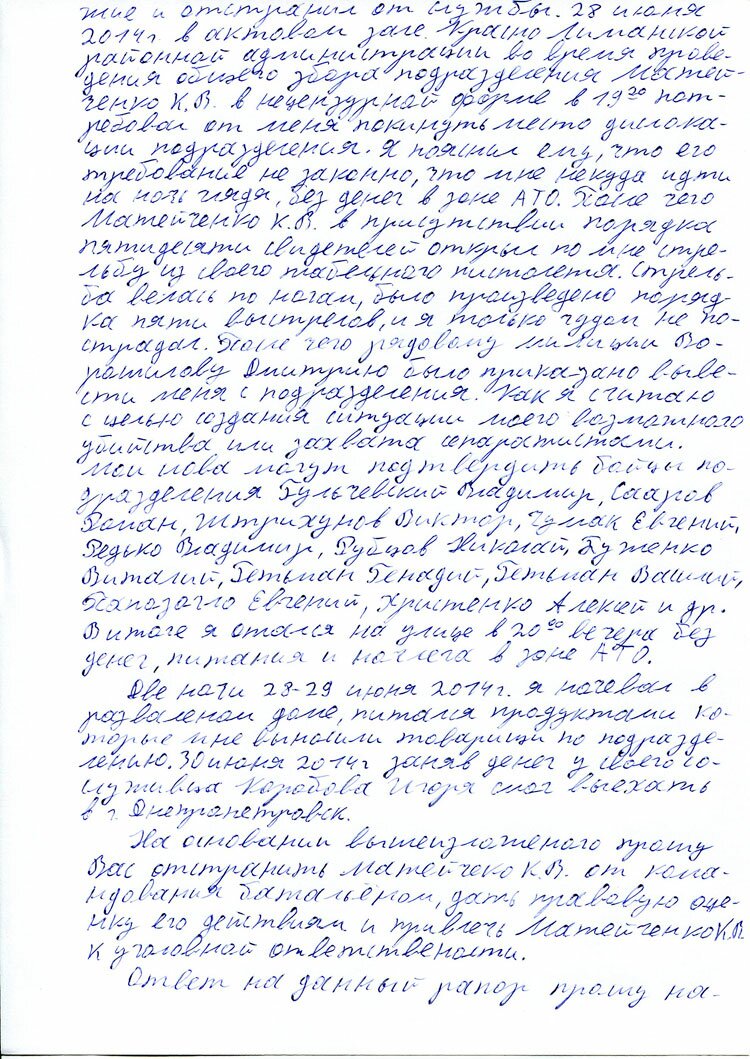 жие и отстранил от службы. 28 июня
2014г в актовом зале Красно Лиманской
районной администрации во время прове-
дения общего збора подразделения Матей-
ченко К.В. в нецензурной форме в 19²⁰ пот-
ребовал от меня покинуть место дислока-
ции подразделения. Я пояснил ему, что его
требование не законно, что мне некуда идти
на ночь глядя, без денег в зоне АТО. После чего
Матейченко К.В. в присутствии порядка
пятидесяти свидетелей открыл по мне стре-
льбу из своего табельного пистолета. Стрель-
ба велась по ногам, было произведено поряд-
ка пяти выстрелов, и я только чудом не по-
страдал. После чего рядовому милиции Во-
рошилову Дмитрию было приказано выве-
сти меня с подразделения. Как я считаю
с целью создания ситуации моего возможного
убийства или захвата сепаратистами.
Мои слова могут подтвердить бойцы по-
дразделения Гульчевский Владимир, Сааров
Роман, Штрихунов Виктор, Чумак Евгений,
Редько Владимир, Рубцов Николай, Буженко
Виталий, Гетьман Генадий, Гетьман Василий,
Папазогло Евгений, Христенко Алексей и др.
В итоге я остался на улице в 20⁰⁰ вечера без
денег, питания и ночлега в зоне АТО.
Две ночи 28-29 июня 2014г. я ночевал в
разваленом доме, питался продуктами ко-
торые мне выносили товарищи по подразде-
лению. 30 июня 2014г заняв денег у своего со-
служивца Коробова Игоря смог выехать
в г. Днепропетровск.
На основании вышеизложеного прошу
Вас отстранить Матейчеко К.В. от кома-
ндования батальёном, дать правовую оце-
нку его действиям и привлечь Матейченко К.В.
к уголовной ответствености.
Ответ на данный рапор прошу на-